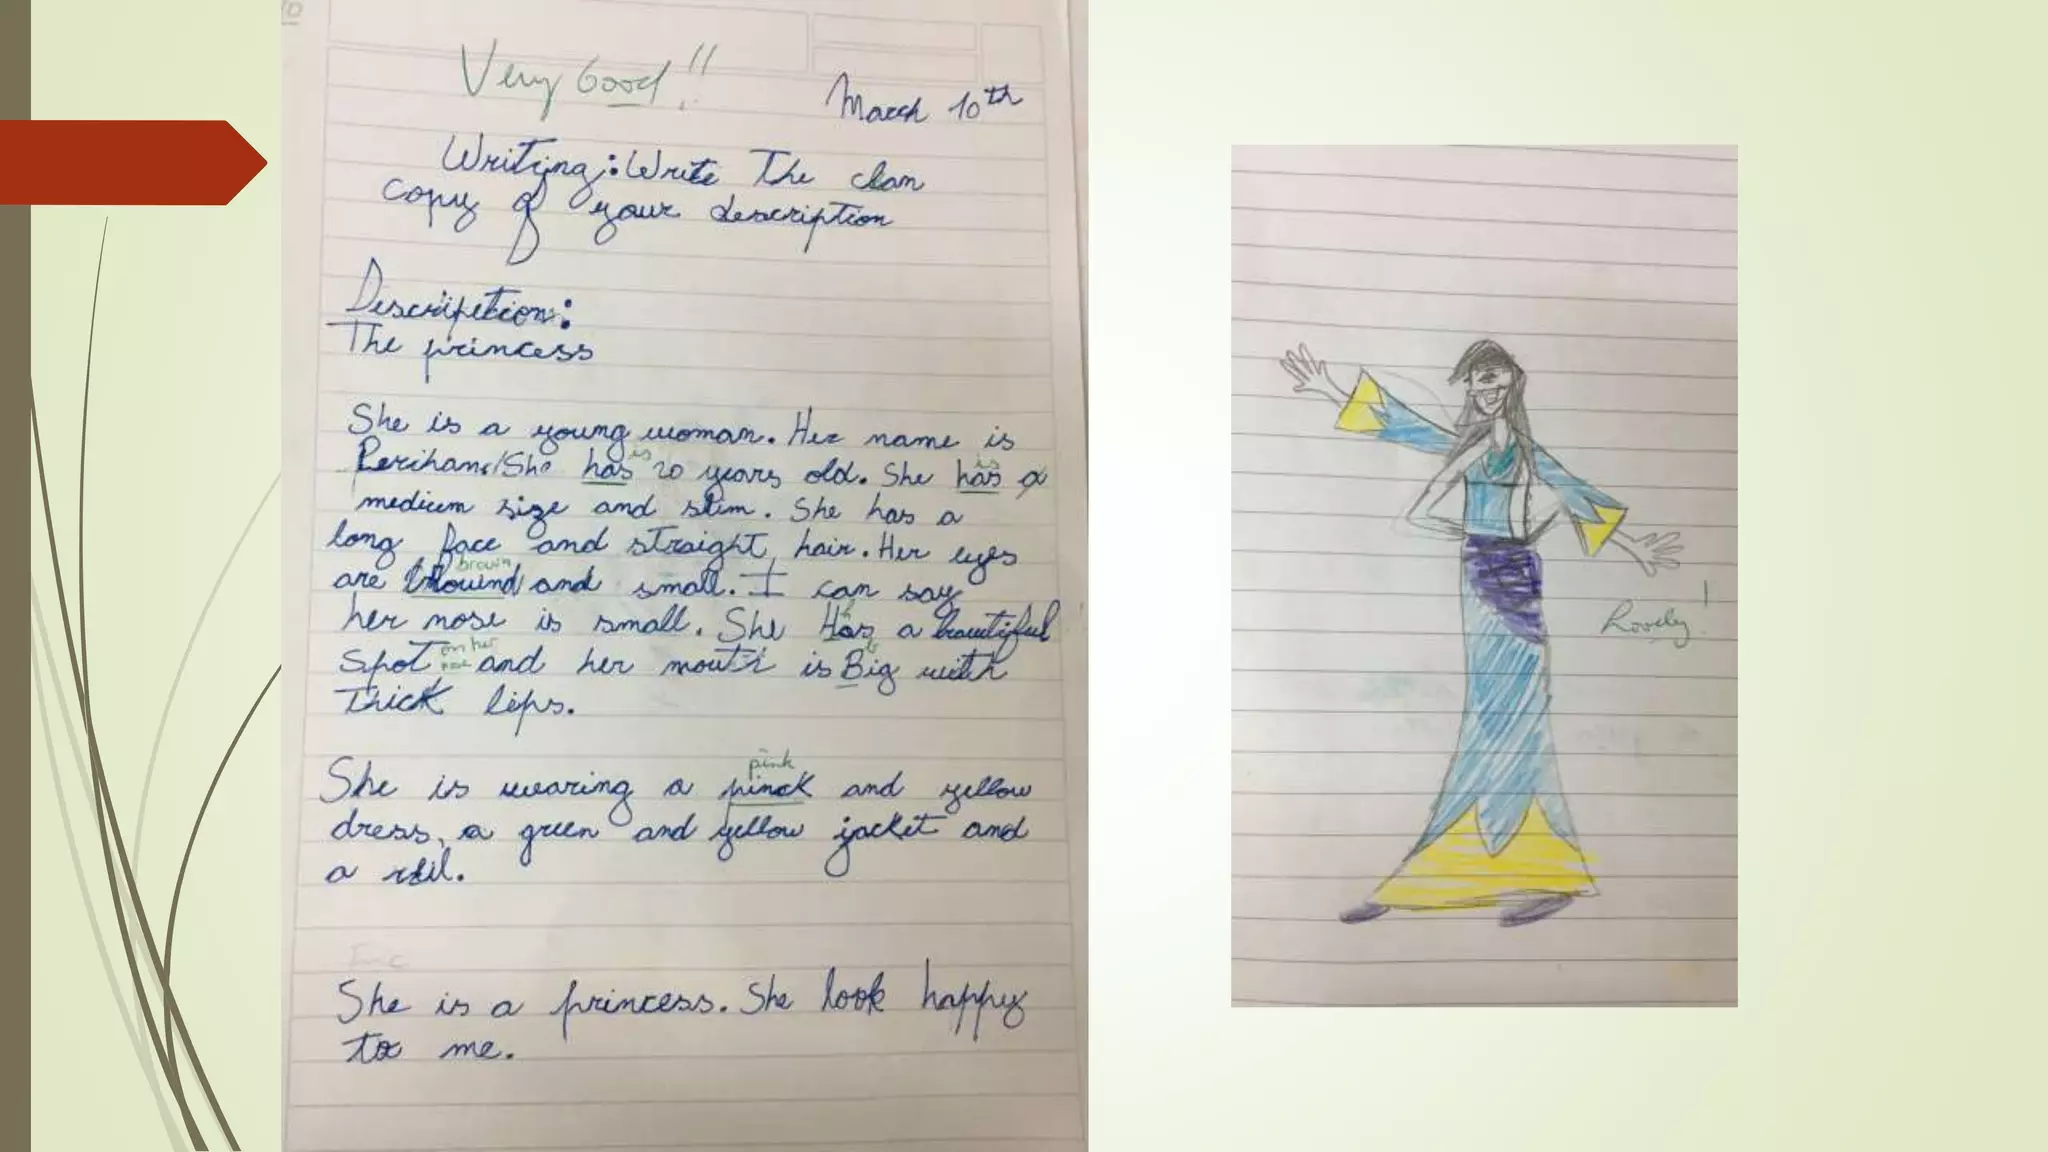 Very Good!!
March 10th
Writing: Write The clan
copy of your description
Descripetion:
The princess
She is a young woman. Her name is
is is
Perihane/She has 20 years old. She has a
medium size and slim. She has a
long face and straight hair. Her eyes
brown
are and small. I can say
her nose is small. She Has a beautiful
h
on her b
Spot and her mouth is Big with
Thick lips.
pink
She is wearing a pinck and yellow
dress, a green and yellow jacket and
a
She is a princess. She look happy
to me.
Lovely!